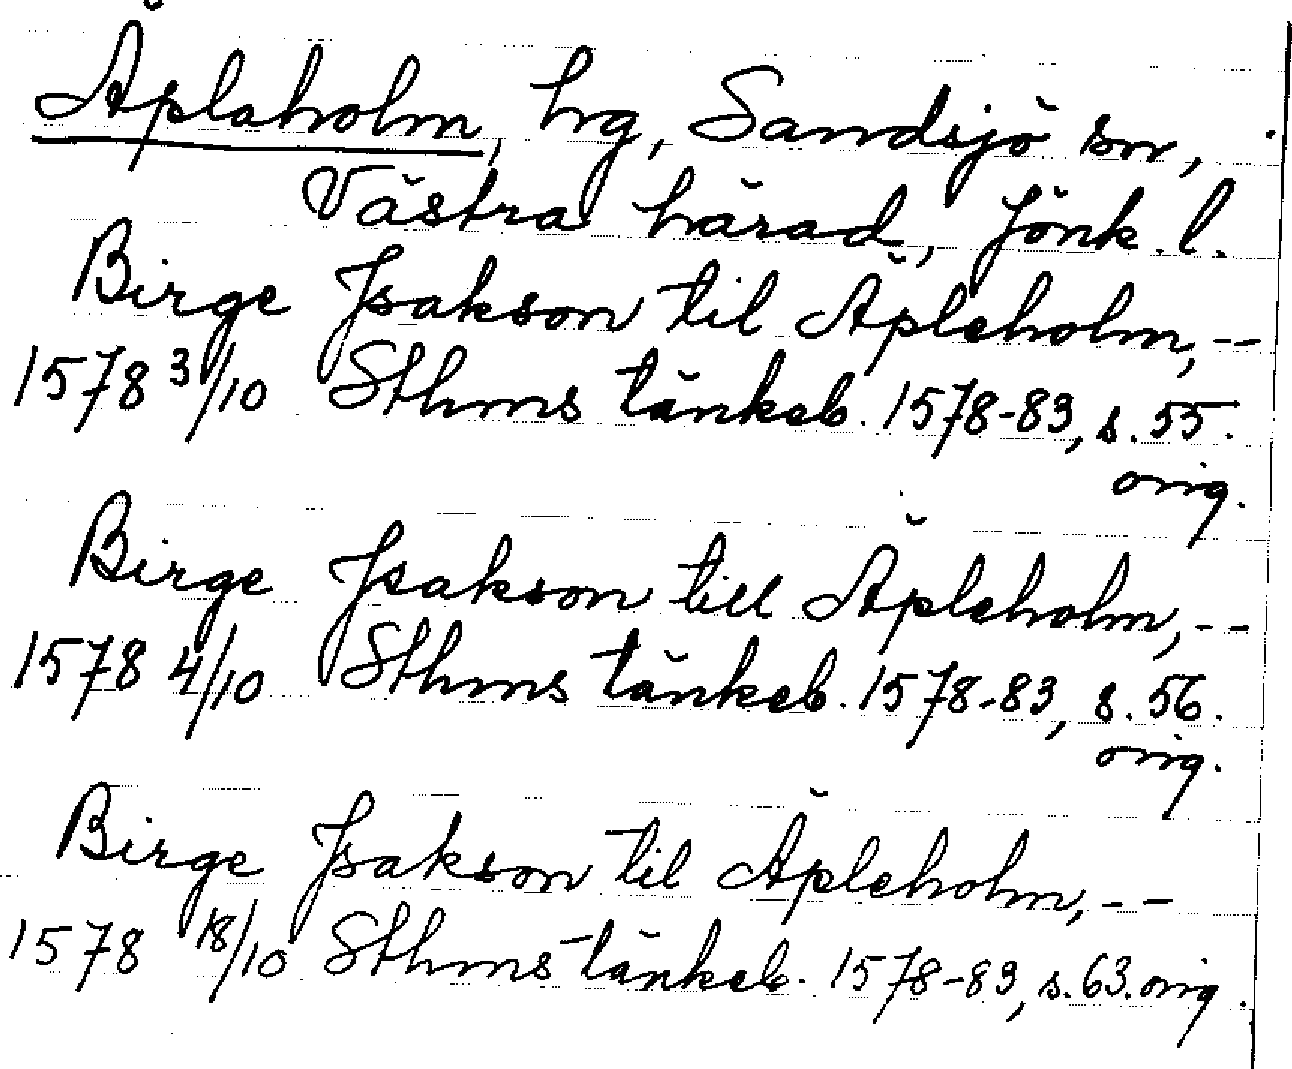 Äplaholm, hg, Sandsjö sn,
Västra härad, Jönk. l.
Birge Jsakson til Äpleholm, --
1578 3/10 Sthms tänkeb. 1578-83, s. 55.
orig.
Birge Jsakson till Äpleholm, --
1578 4/10 Sthms tänkeb. 1578-83, s. 56.
orig.
Birge Jsakson til Äpleholm, --
1578 18/10 Sthms tänkeb. 1578-83, s. 63. orig.